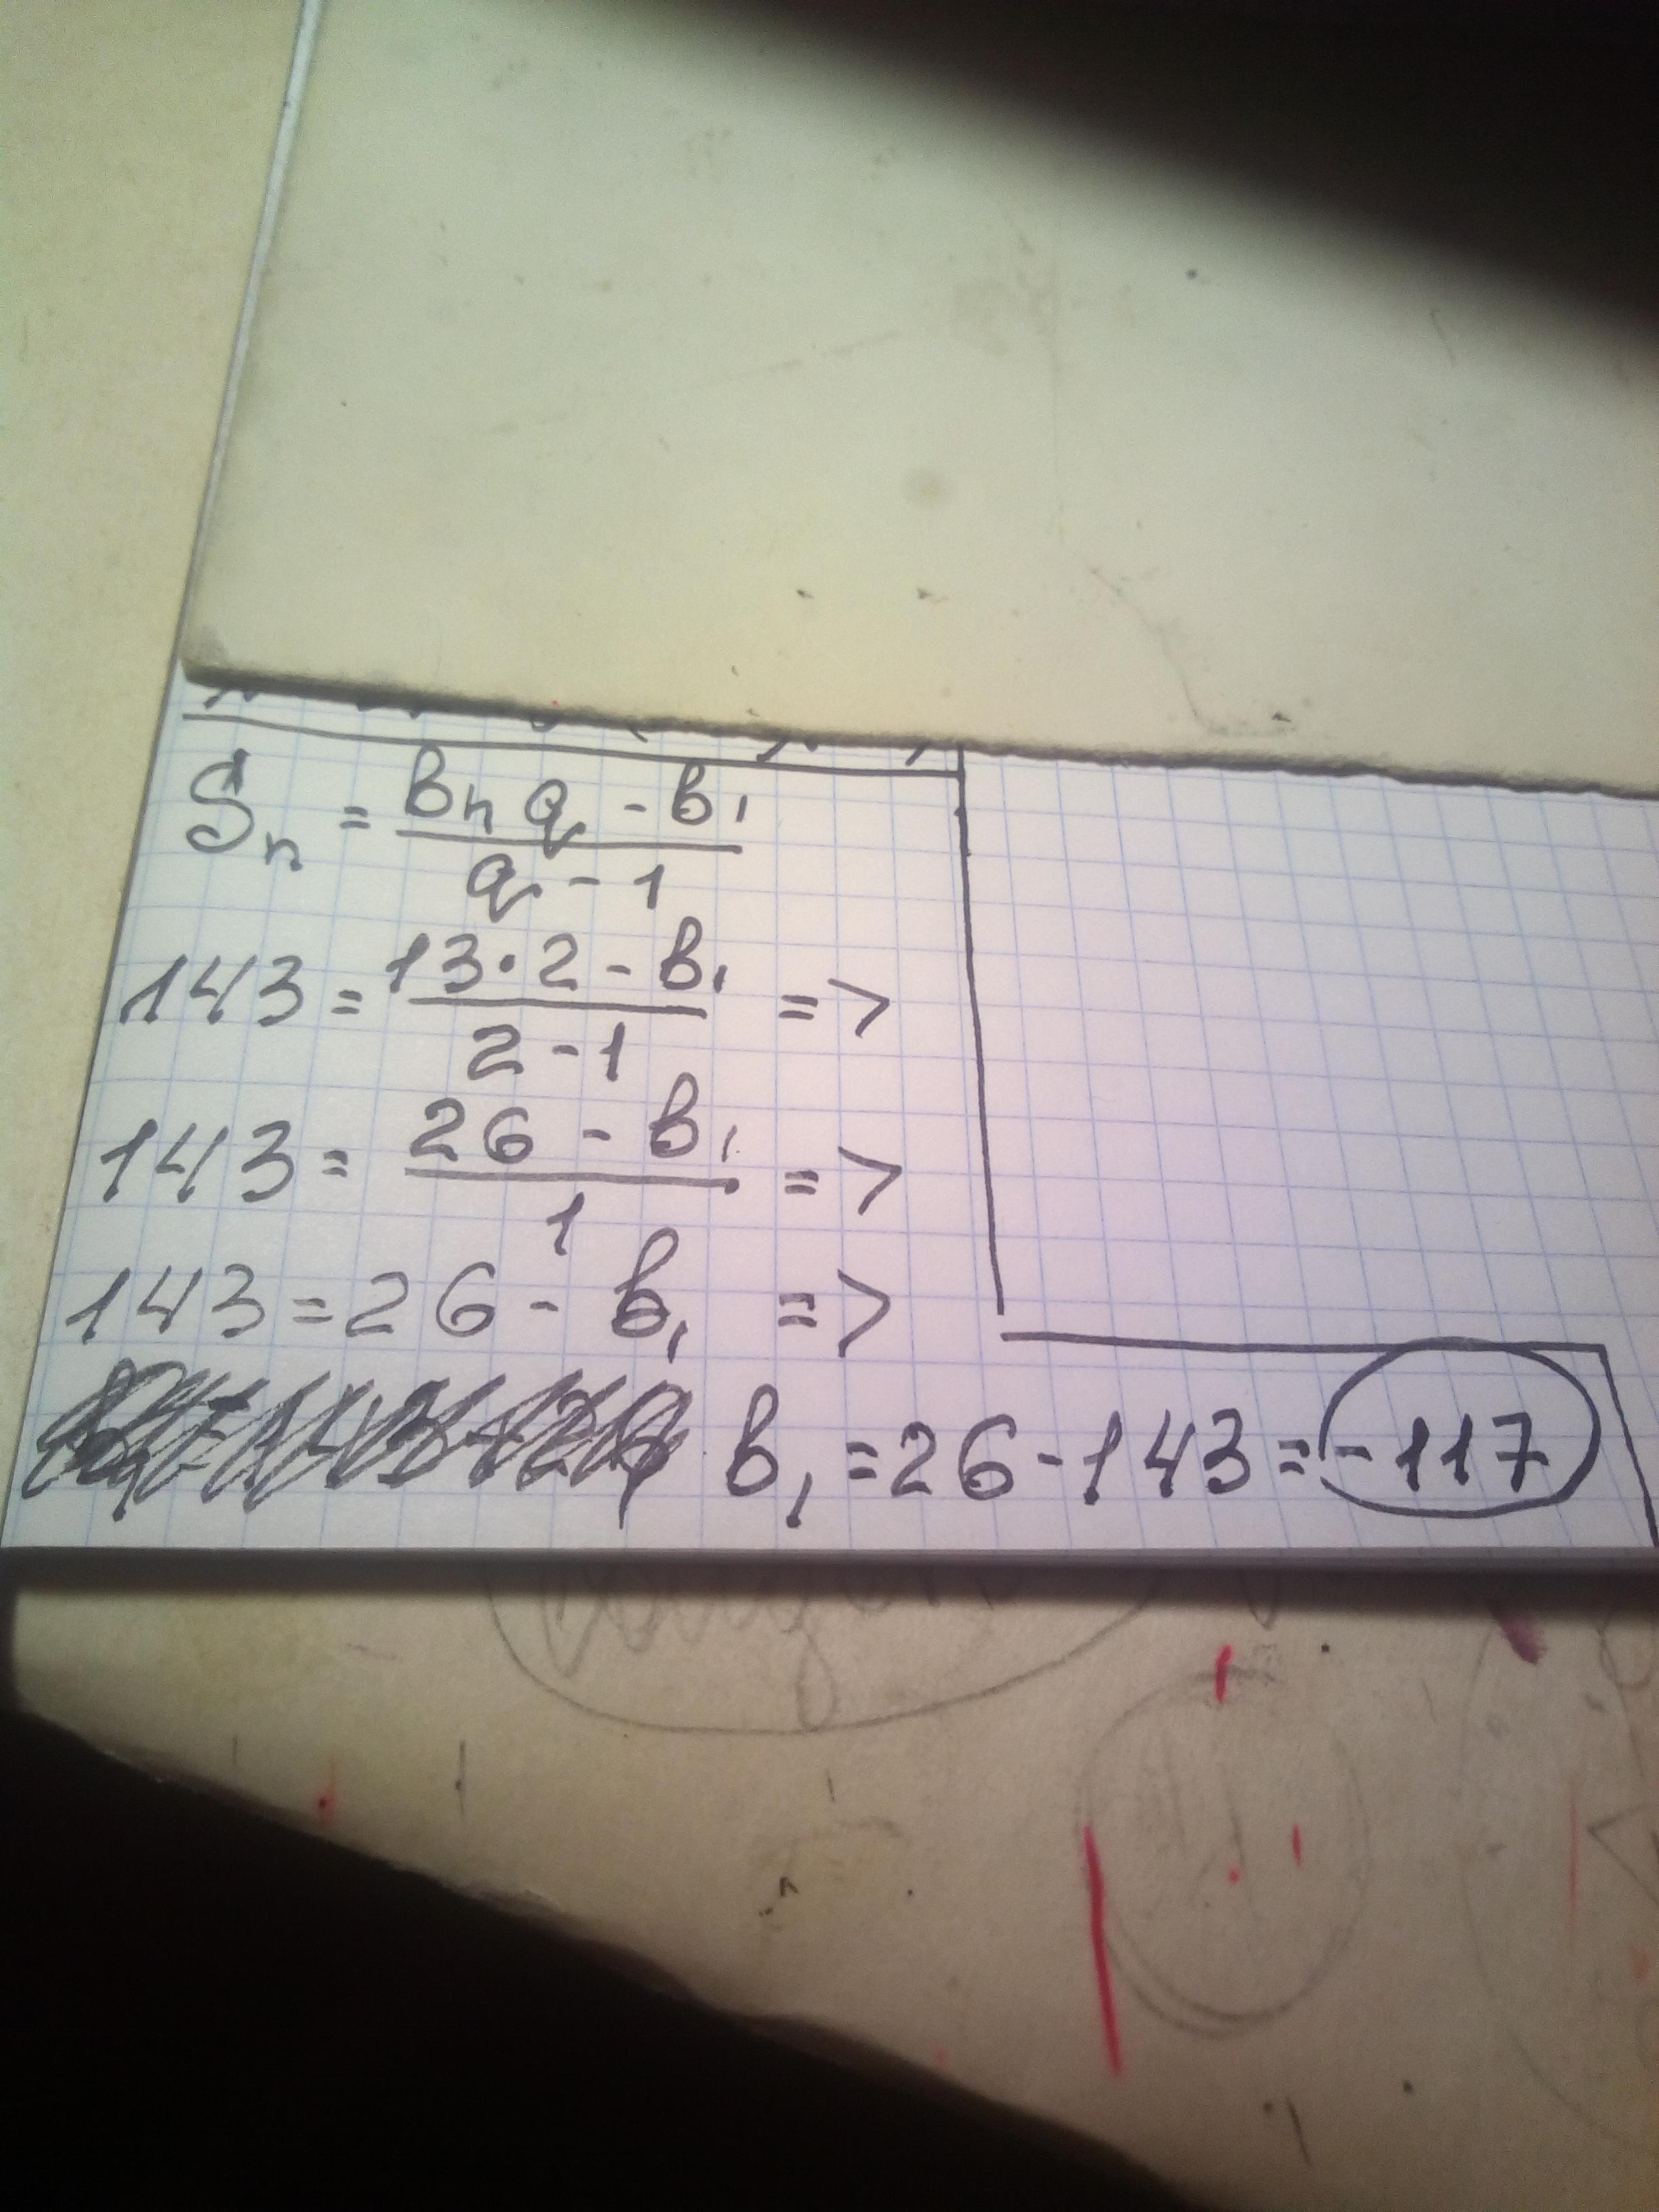 Sₙ = (bₙ q - b₁) / (q - 1)
143 = (13·2 - b₁) / (2 - 1) =>
143 = (26 - b₁) / 1 =>
143 = 26 - b₁ =>
b₁ = 26 - 143 = -117